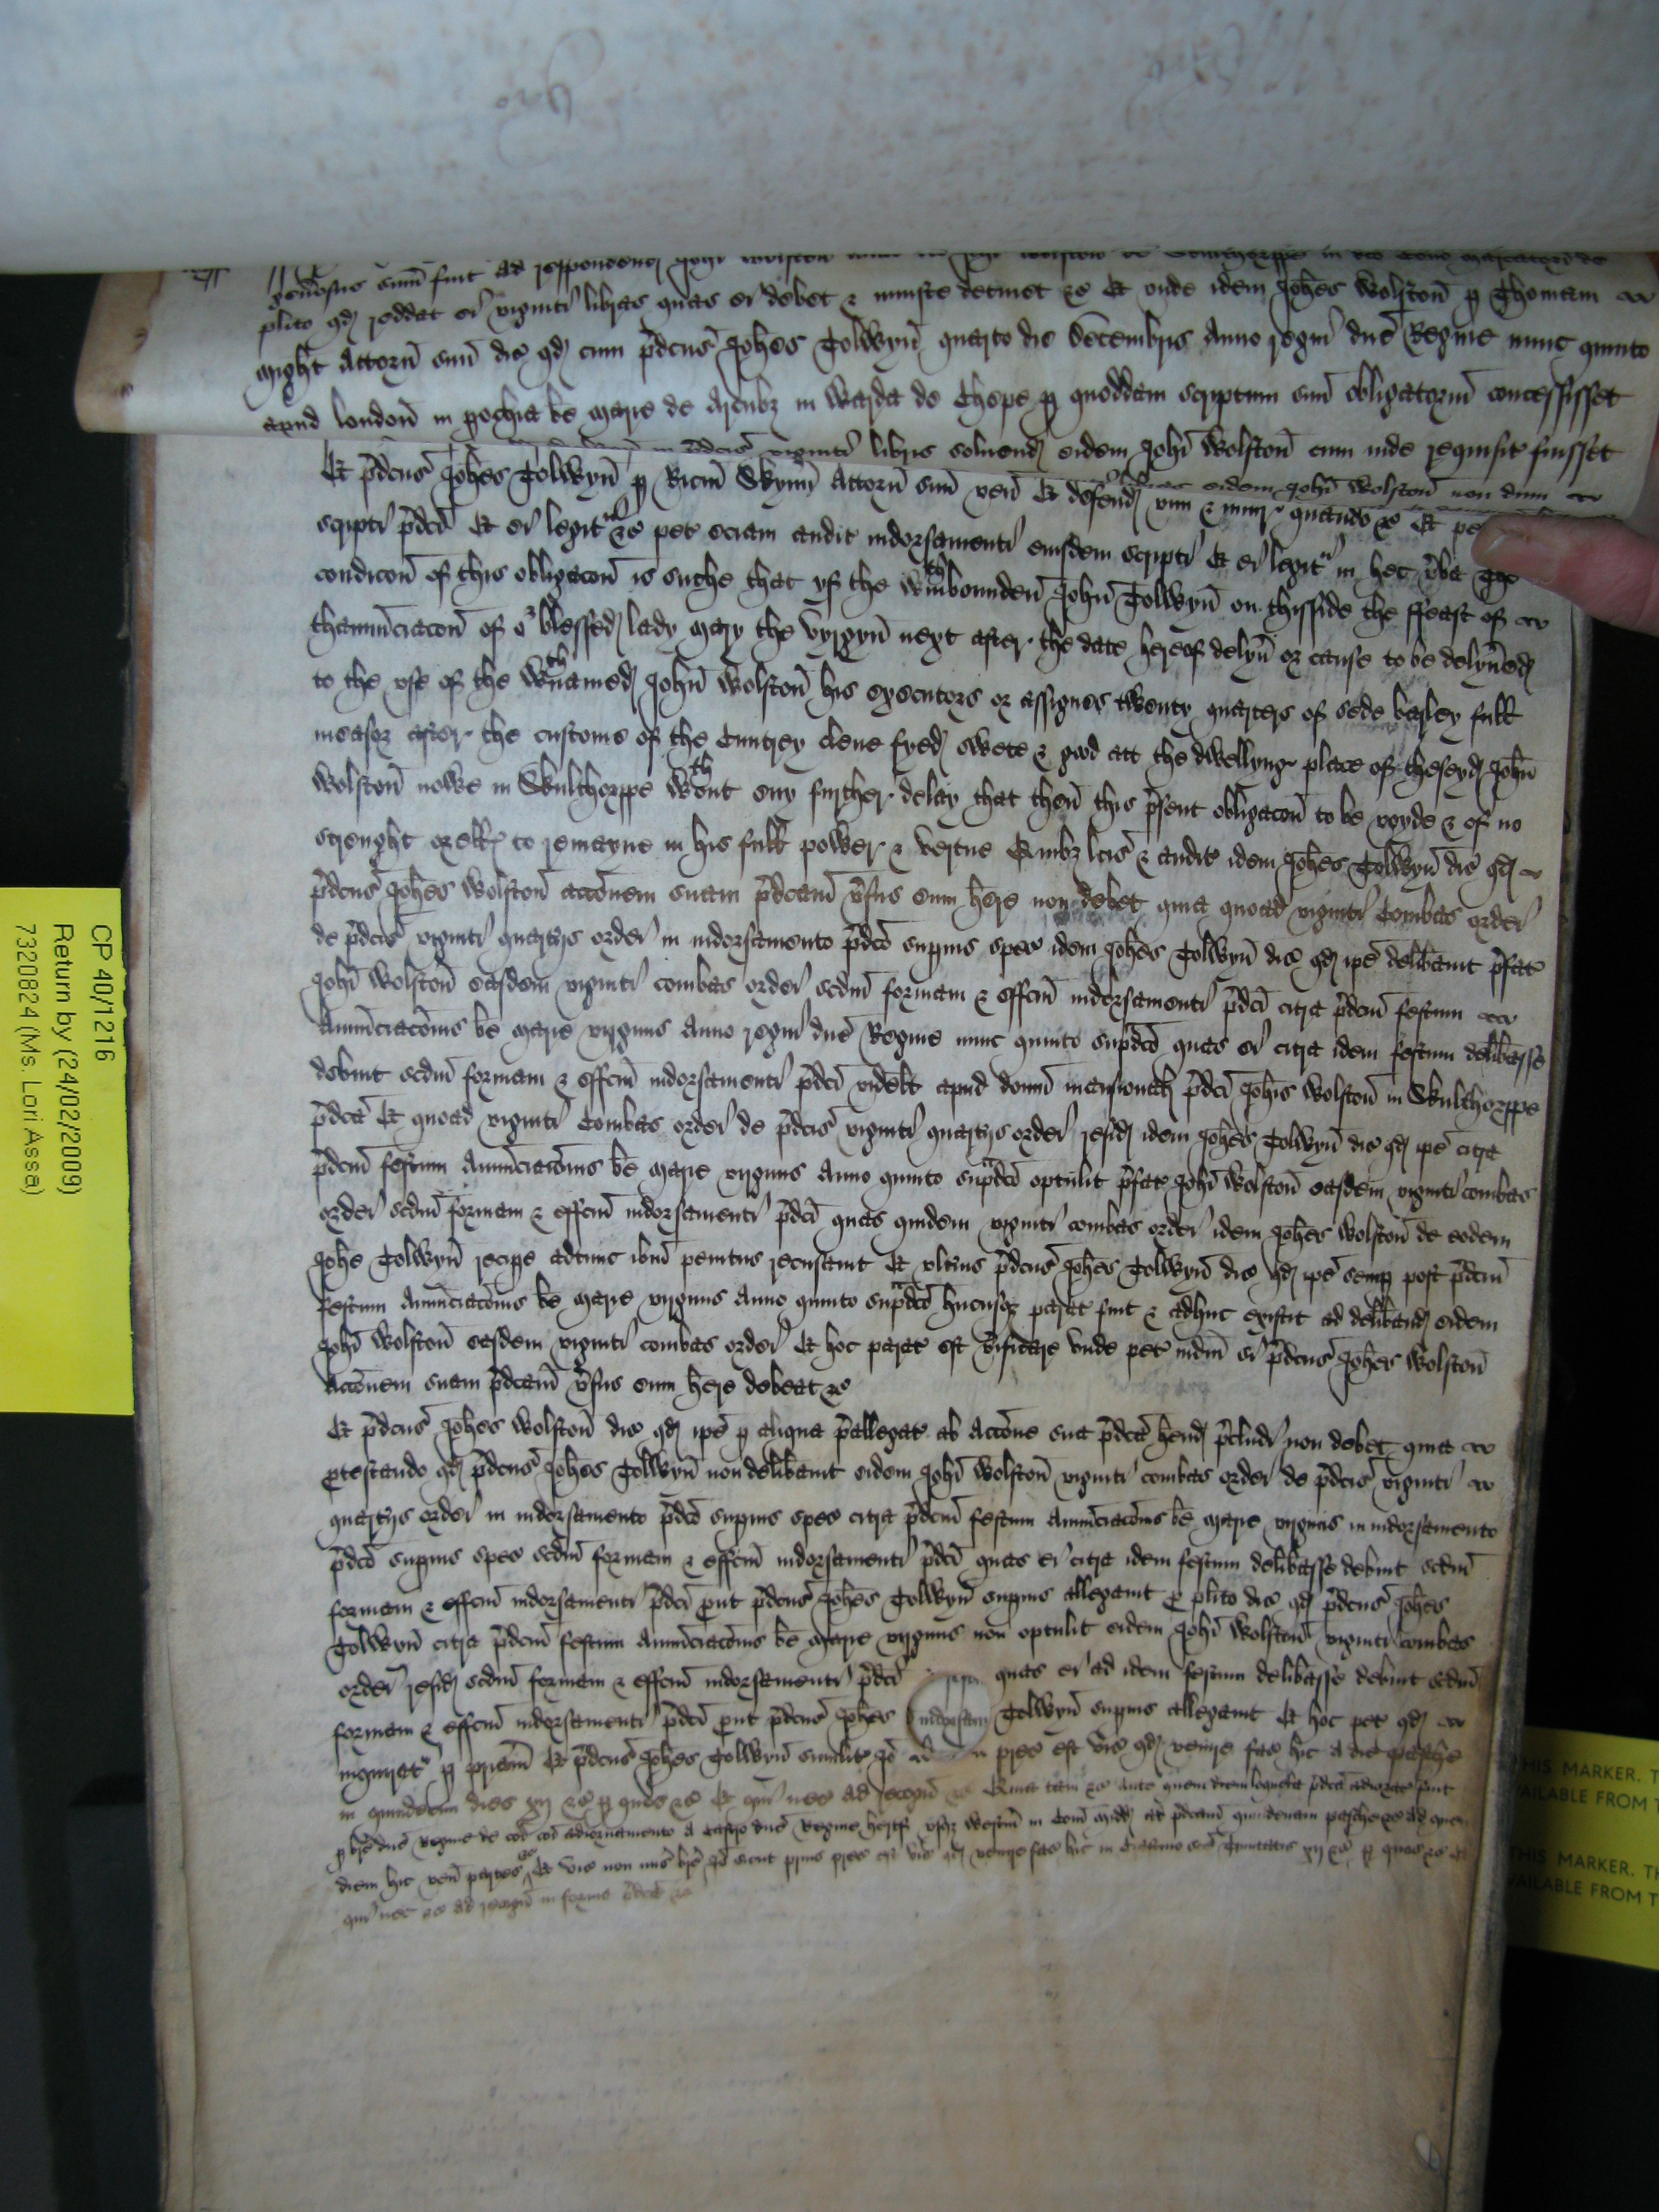 genosus sum̄ fuit ad respondend Joh̄i Wolston
plito qd reddat ei viginti libras quas ei debet & iniuste detinet &c Et unde idem Joh̄es Wolston̄ p Thomam
might Attorn̄ suū dic̄ qd cum p̄dcus Joh̄es Tolwyn̄ quarto die Decembris Anno regni dn̄e Regine nunc quinto
apud London̄ in pochia bē Marie de Arcubȝ in Warda de Chepe p quoddam scriptum suū obligatoriū concessisset
in p̄dcis viginti libris soluend eidem Joh̄i Wolston̄ cum inde requisit fuisset
eidem Joh̄i Wolston̄ non dum
Et p̄dcus Joh̄es Tolwyn̄ p Ricm̄ Skynn̄ Attorn̄ suū ven̄ Et defend vim & iniur quando &c Et pet
scripti p̄dci Et ei legit &c pet eciam audit indorsamenti eiusdem scripti Et ei legitʳ in hec v̄ba The
condicon̄ of this obligacon̄ is suche that yf the wᵗʰinbounden̄ John̄ Tolwyn̄ on thisside the ffeast of
thannūciacon̄ of oʳ blessed lady mary the vyrgyn̄ next after the date hereof delyū or cause to be delyūed
to the use of the wᵗʰnamed John̄ Wolston̄ his executors or assignes twenty quarters of sede barley full
measor after the custome of the Cuntrey clene fyed swete & good att the dwellyng place of theseyd John̄
Wolston̄ nowe in Skulthorppe wᵗʰout eny further delay that then̄ this p̄sent obligacon̄ to be voyde & of no
strenght or ell to remayne in his full power & vertue Quibȝ lc̄is & audit idem Joh̄es Tolwyn̄ dic̄ qd
p̄dcus Joh̄es Wolston̄ acc̄onem suam p̄dcam v̄sus eum h̄ere non debet quia quoad viginti Combas ordei
de p̄dcis viginti quarts ordei in indorsamento p̄dco supius spec idem Joh̄es Tolwyn̄ dic̄ qd ip̄e delib̄auit p̄fat
Joh̄i Wolston̄ easdem viginti combas ordei scdm̄ formam & effcm̄ indorsamenti p̄dci citra p̄dcm̄ festum
Annūciac̄onis bē Marie virginis Anno regni dn̄e Regine nunc quinto sup̄dco quas ei citra idem festum delib̄asse
debuit scdm̄ formam & effcm̄ indorsamenti p̄dci videlt apud domū mansional p̄dci Joh̄is Wolston̄ in Skulthorppe
p̄dca Et quoad viginti Combas ordei de p̄dcis viginti quarts ordei resid idem Joh̄es Tolwyn̄ dic̄ qd ip̄e citra
p̄dcm̄ festum Annūciac̄onis bē Marie virginis Anno quinto sup̄dco optulit p̄fat Joh̄i Wolston̄ easdem viginti combas
ordei scdm̄ formam & effcm̄ indorsamenti p̄dci quas quidem viginti combas ordei idem Joh̄es Wolston̄ de eodem
Joh̄e Tolwyn̄ recipe adtunc ib̄m penitus recusauit Et ult̄ius p̄dcus Joh̄es Tolwyn̄ dic̄ qd ip̄e semp post p̄dcm̄
festum Annūciac̄onis bē Marie virginis Anno quinto sup̄dco hucusqȝ parat fuit & adhuc existit ad delib̄and eidem
Joh̄i Wolston̄ easdem viginti combas ordei Et hoc parat est v̄ificare unde pet iudm̄ si p̄dcus Joh̄es Wolston̄
Acc̄onem suam p̄dcam v̄sus eum h̄ere debeat &c
Et p̄dcus Joh̄es Wolston̄ dic̄ qd ip̄e p aliqua p̄allegat ab acc̄one sua p̄dca h̄end p̄cludi non debet quia
p̄testando qd p̄dcus Joh̄es Tolwyn̄ non delib̄auit eidem Joh̄i Wolston̄ viginti combas ordei de p̄dcis viginti
quarts ordei in indorsamento p̄dco supius spec citra p̄dcm̄ festum Annūciac̄onis bē Marie virginis in indorsamento
p̄dco supius spec scdm̄ formam & effcm̄ indorsamenti p̄dci quas ei citra idem festum delib̄asse debuit scdm̄
formam & effcm̄ indorsamenti p̄dci put p̄dcus Joh̄es Tolwyn̄ supius allegauit p plito dic̄ qd p̄dcus Joh̄es
Tolwyn̄ citra p̄dcm̄ festum Annūciac̄onis bē Marie virginis non optulit eidem Joh̄i Wolston̄ viginti combas
ordei resid scdm̄ formam & effcm̄ indorsamenti p̄dci quas ei ad idem festum delib̄asse debuit scdm̄
formam & effcm̄ indorsamenti p̄dci put p̄dcus Joh̄es Tolwyn̄ supius allegauit Et hoc pet qd
inquiratʳ p pr̄iam Et p̄dcus Joh̄es Tolwyn̄ similit Iō p̄c est vic̄ qd venire fac̄ hic a die Pasche
in quindecim dies xij &c p quos &c Et qui nec ad recogn̄ &c Quia tam &c Ante quem diem loquela p̄dca adiornat fuit
p br̄e dn̄e Regine de cōi adiornamento a Castro dn̄e Regine Hertf usqȝ Westm̄ in Com̄ Midd ad p̄dcam quindenam pasche &c ad quem
diem hic ven̄ partes &c Et vic̄ non mis̄ br̄e Iō sicut prius p̄c est vic̄ qd venire fac̄ hic in Crastino sc̄e Trinitatis xij &c p quos &c Et
qui nec &c ad recogn̄ in forma p̄dca &c
CP 40/1216
Return by (24/02/2009)
7320824 (Ms. Lori Assea)
THIS MARKER. T
AVAILABLE FROM T
THIS MARKER. TH
AVAILABLE FROM T